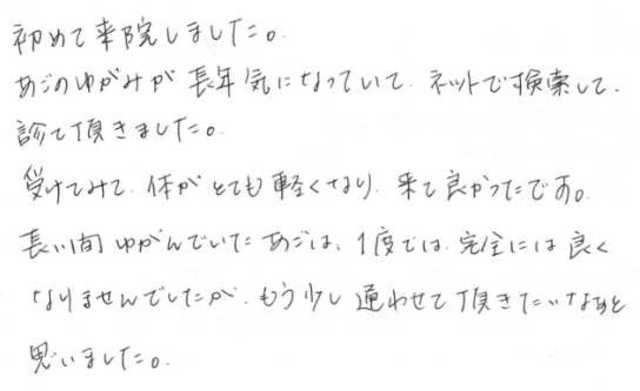 初めて来院しました。
あごのゆがみが長年気になっていて、ネットで検索して、
診て頂きました。
受けてみて、体がとても軽くなり、来て良かったです。
長い間ゆがんでいたあごは、1度では、完全には良く
なりませんでしたが、もう少し通わせて頂きたいなぁと
思いました。